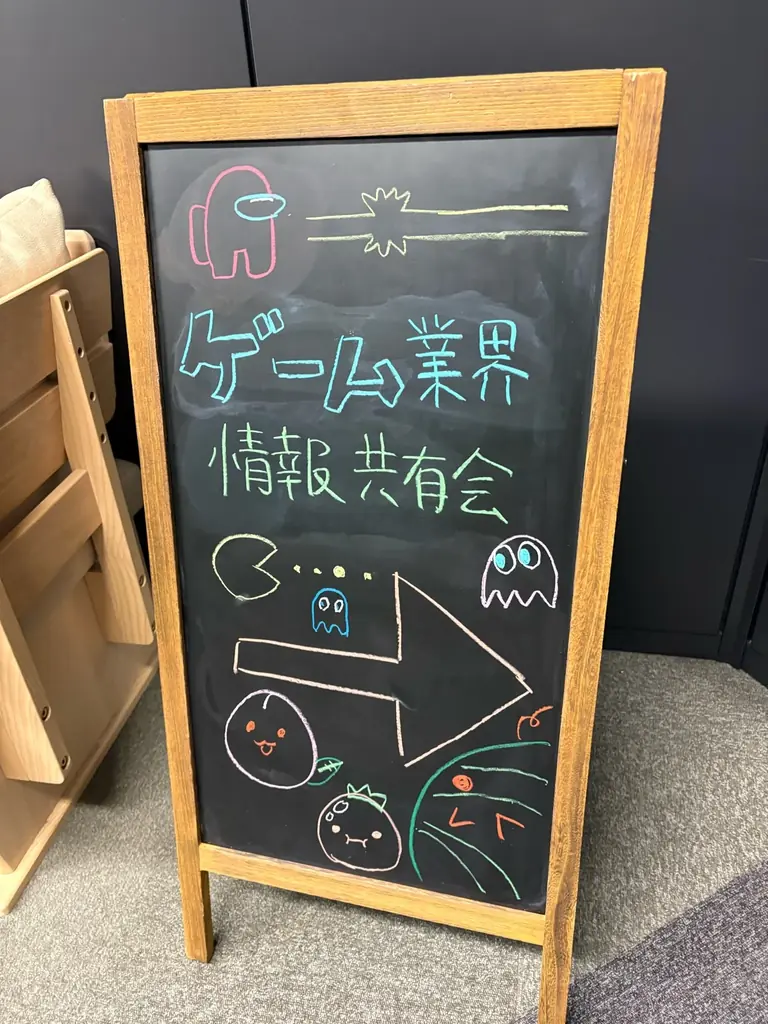 ゲーム業界
情報共有会